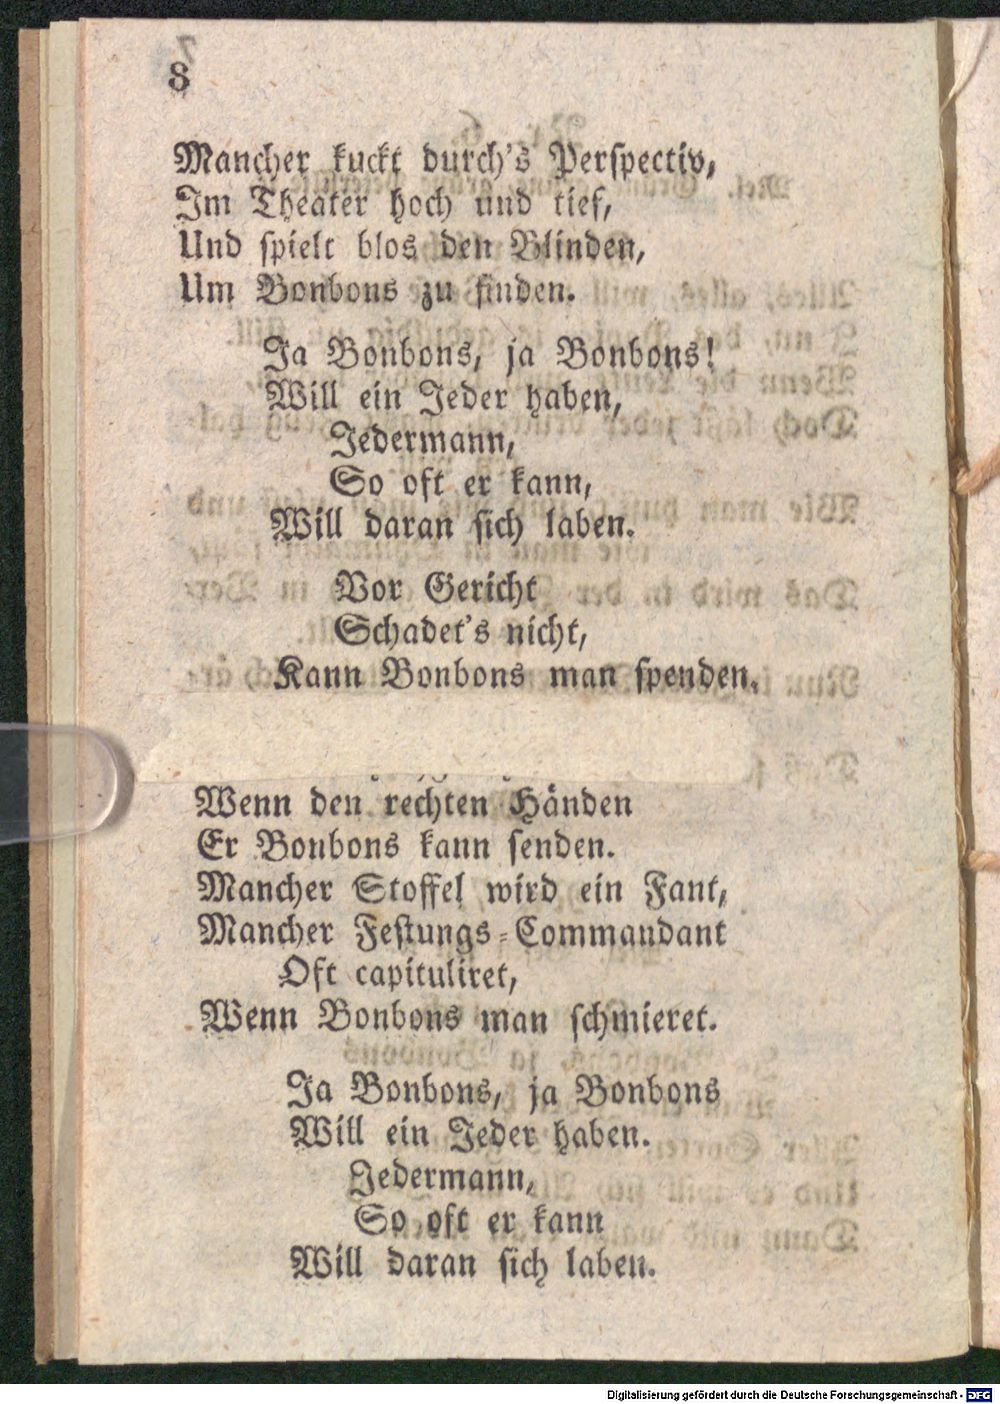 8
Mancher kuckt durch's Perspectiv,
Im Theater hoch und tief,
Und spielt blos den Blinden,
Um Bonbons zu finden.
Ja Bonbons, ja Bonbons!
Will ein Jeder haben,
Jedermann,
So oft er kann,
Will daran sich laben.
Vor Gericht
Schadet's nicht,
Kann Bonbons man spenden.
Wenn den rechten Händen
Er Bonbons kann senden.
Mancher Stoffel wird ein Fant,
Mancher Festungs-Commandant
Oft capituliret,
Wenn Bonbons man schmieret.
Ja Bonbons, ja Bonbons
Will ein Jeder haben.
Jedermann,
So oft er kann
Will daran sich laben.
Digitalisierung gefördert durch die Deutsche Forschungsgemeinschaft - DFG